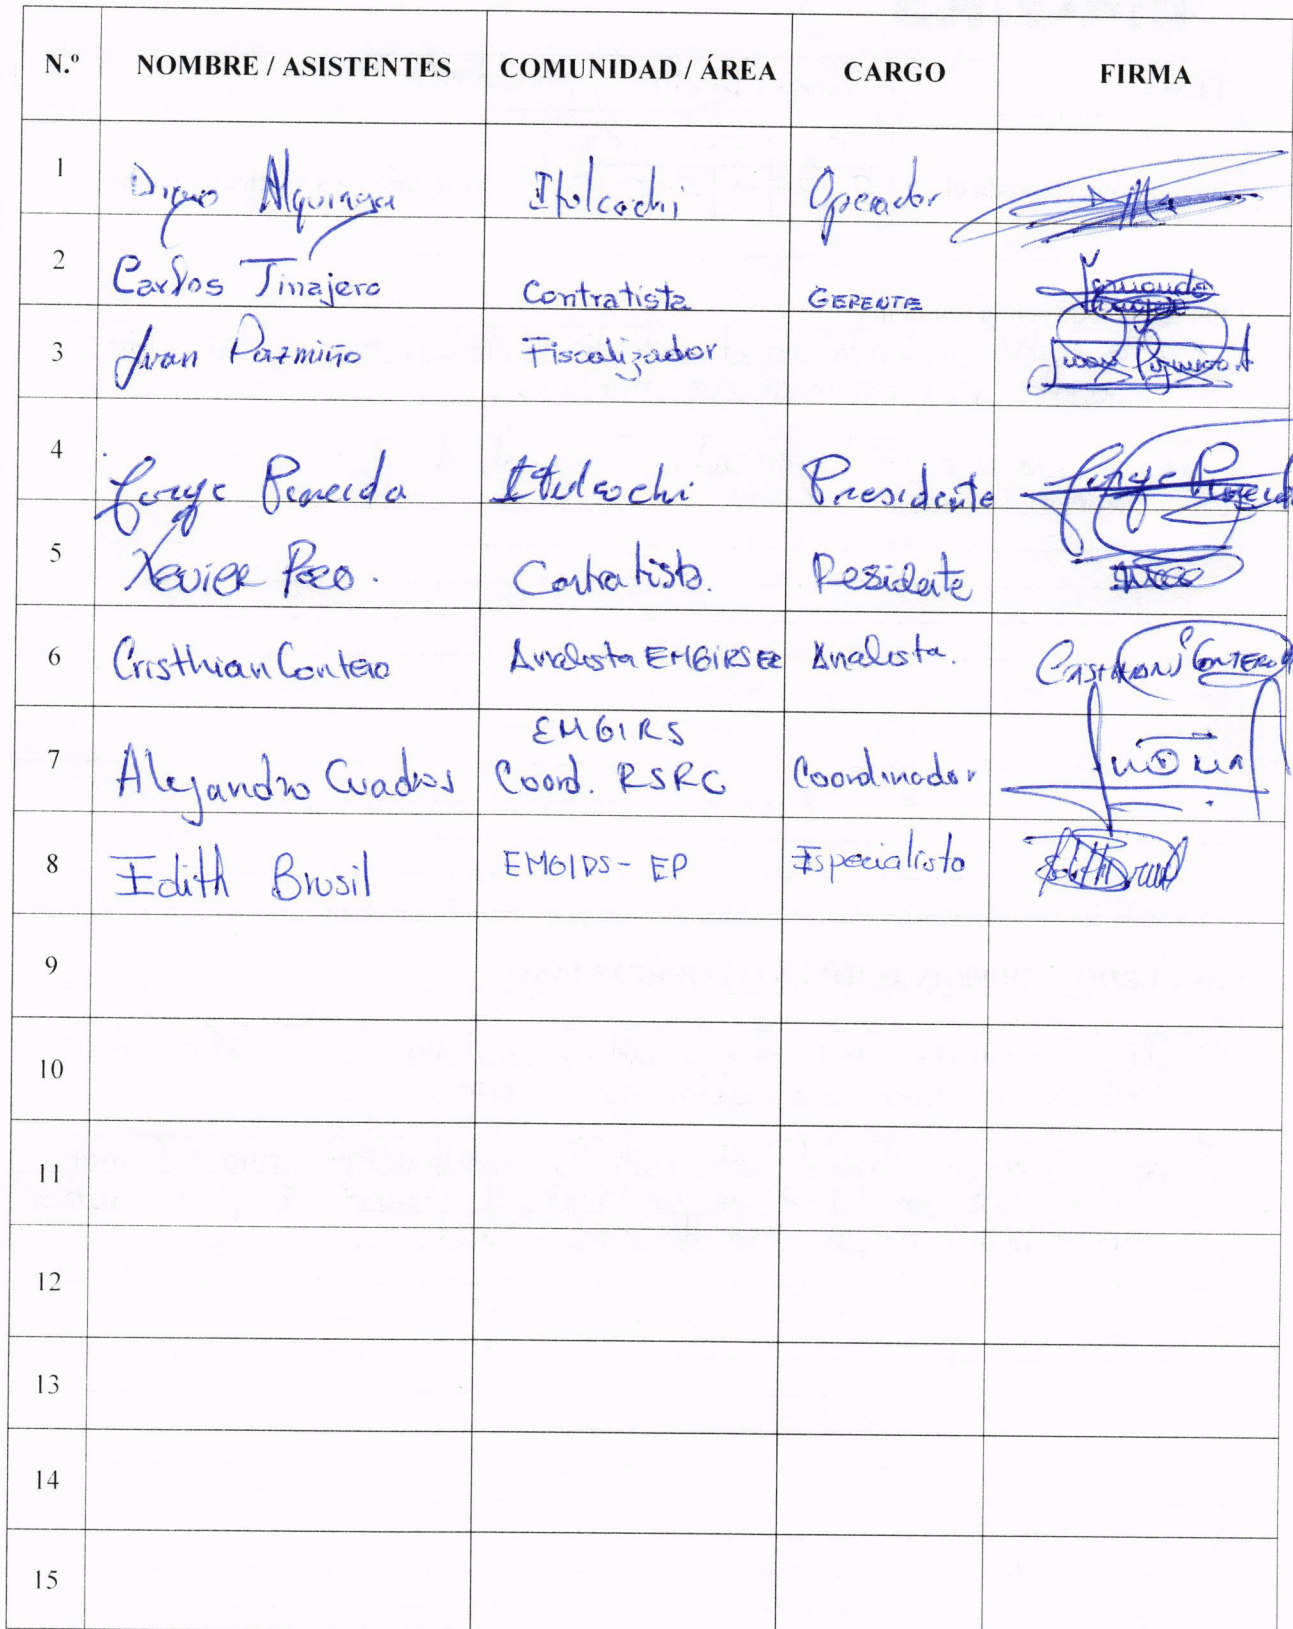 N.º NOMBRE / ASISTENTES COMUNIDAD / ÁREA CARGO FIRMA
1 Diego Alquinga Itulcachi Operador
2 Carlos Tinajero Contratista GERENTE
3 Juan Pazmiño Fiscalizador
4 Jorge Pineida Itulcachi Presidente Jorge Pineida
5 Xavier Pozo. Contratista. Residente
6 Cristhian Contero Analista EMGIRS EP Analista. Contero
EMGIRS
7 Alejandro Cuadros Coord. RSRC Coordinador
8 Edith Brusil EMGIRS-EP Especialista Edith Brusil
9
10
11
12
13
14
15